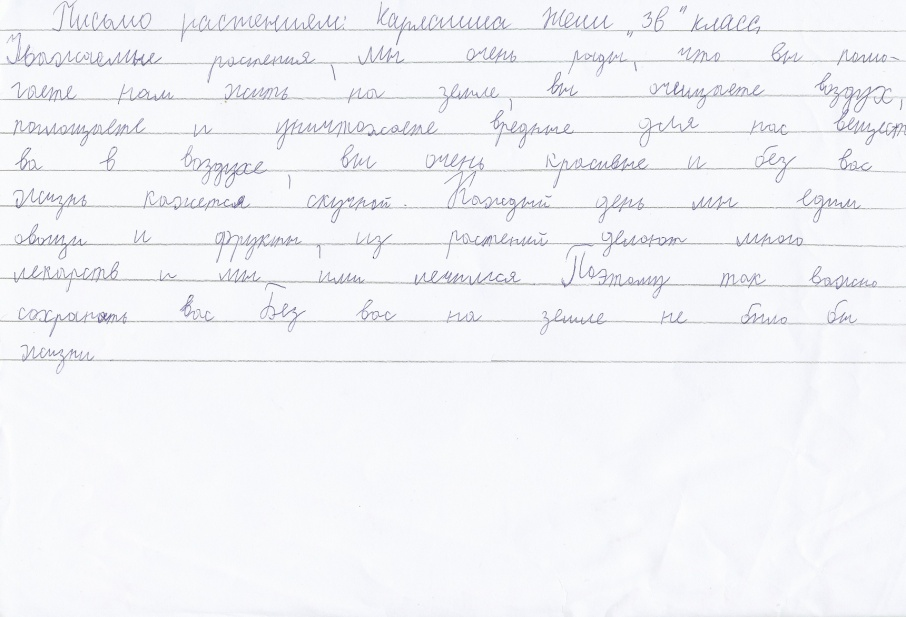 Письмо растениям: Карлашша Жени "3В" класс,
Уважаемые растения, мы очень рады, что вы помо-
гаете нам жить на земле, вы очищаете воздух,
поглощаете и уничтожаете вредные для нас вещест
ва в воздухе, вы очень красивые и без вас
жизнь кажется скучной. Каждый день мы едим
овощи и фрукты, из растений делают много
лекарств и мы ими лечимся. Поэтому так важно
сохранять вас Без вас на земле не было бы
жизни